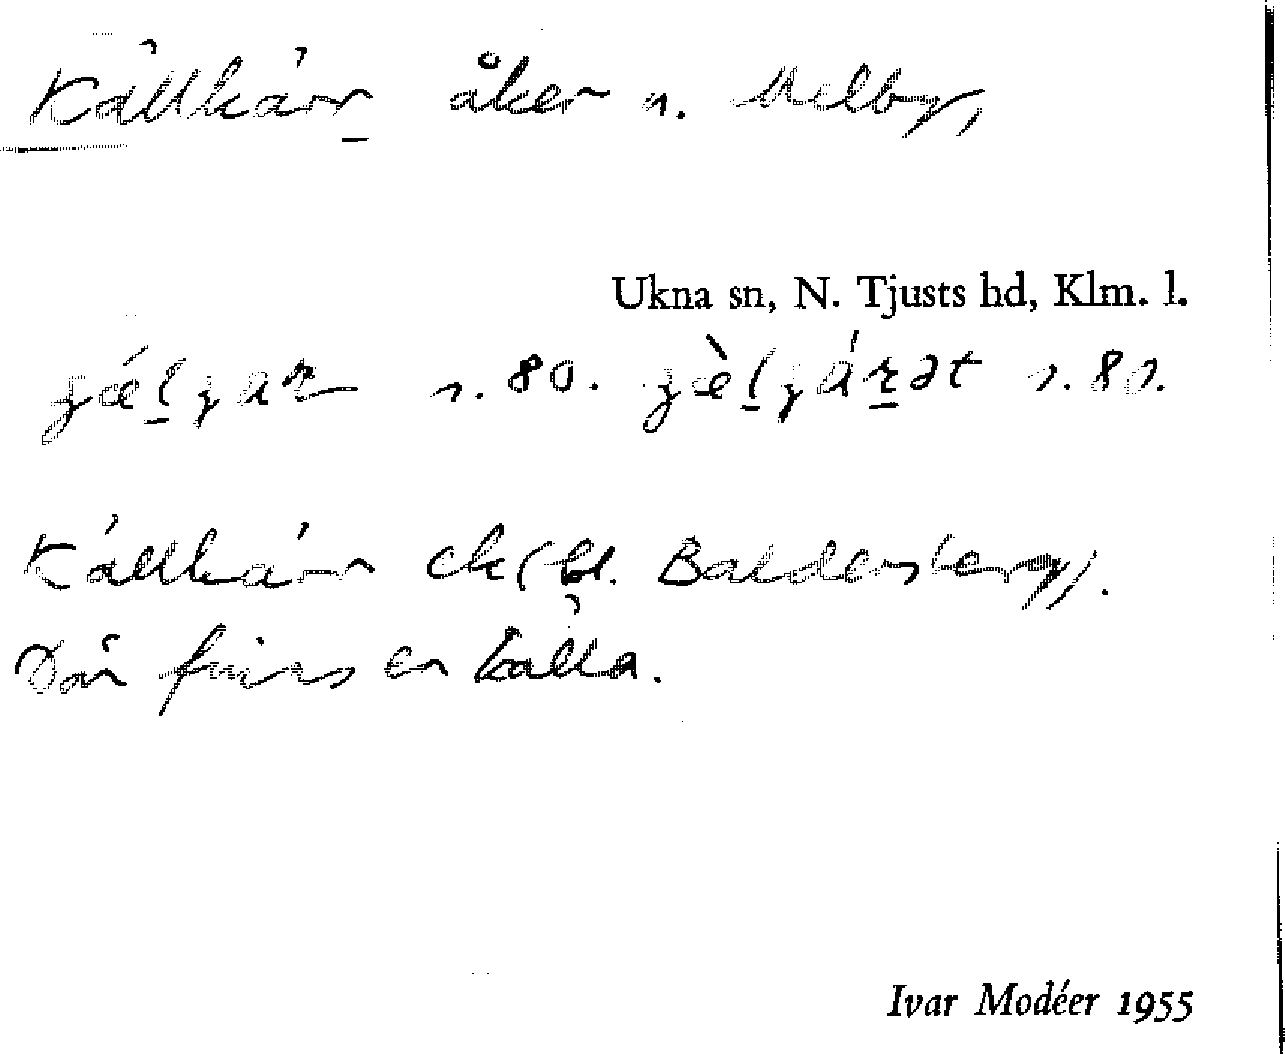 Källkärr åker n. Melby,
Ukna sn, N. Tjusts hd, Klm. l.
s. 80. s. 80.
Källkärr ek(bl. Baldersberg).
Där finns en källa.
Ivar Modéer 1955